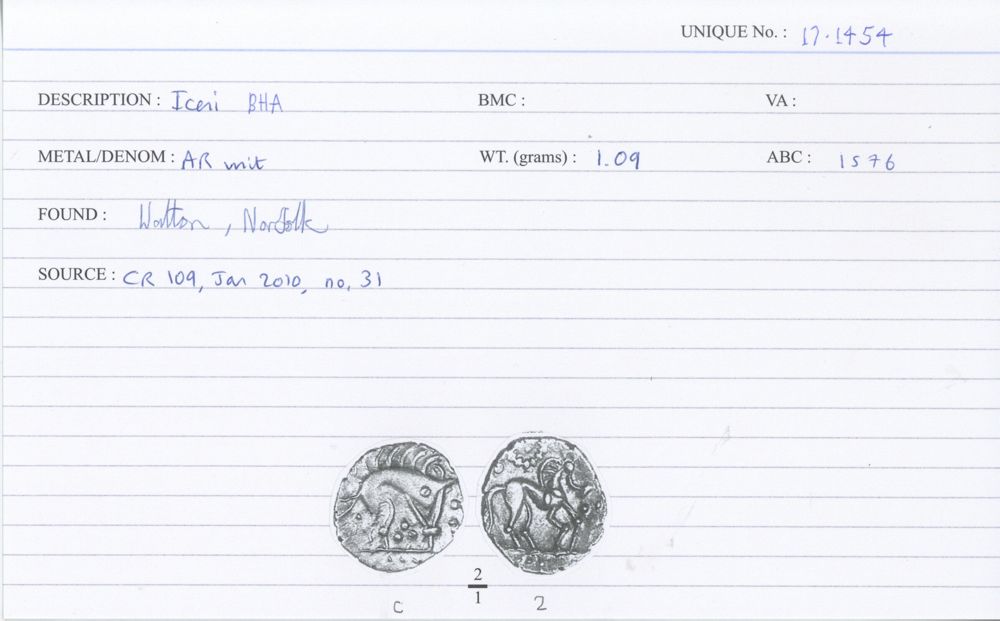 UNIQUE No. : 17.1454
DESCRIPTION : Iceni BHA BMC : VA :
METAL/DENOM : AR unit WT. (grams) : 1.09 ABC : 1576
FOUND : Watton, Norfolk
SOURCE : CR 109, Jan 2010, no. 31
2
1
C 2